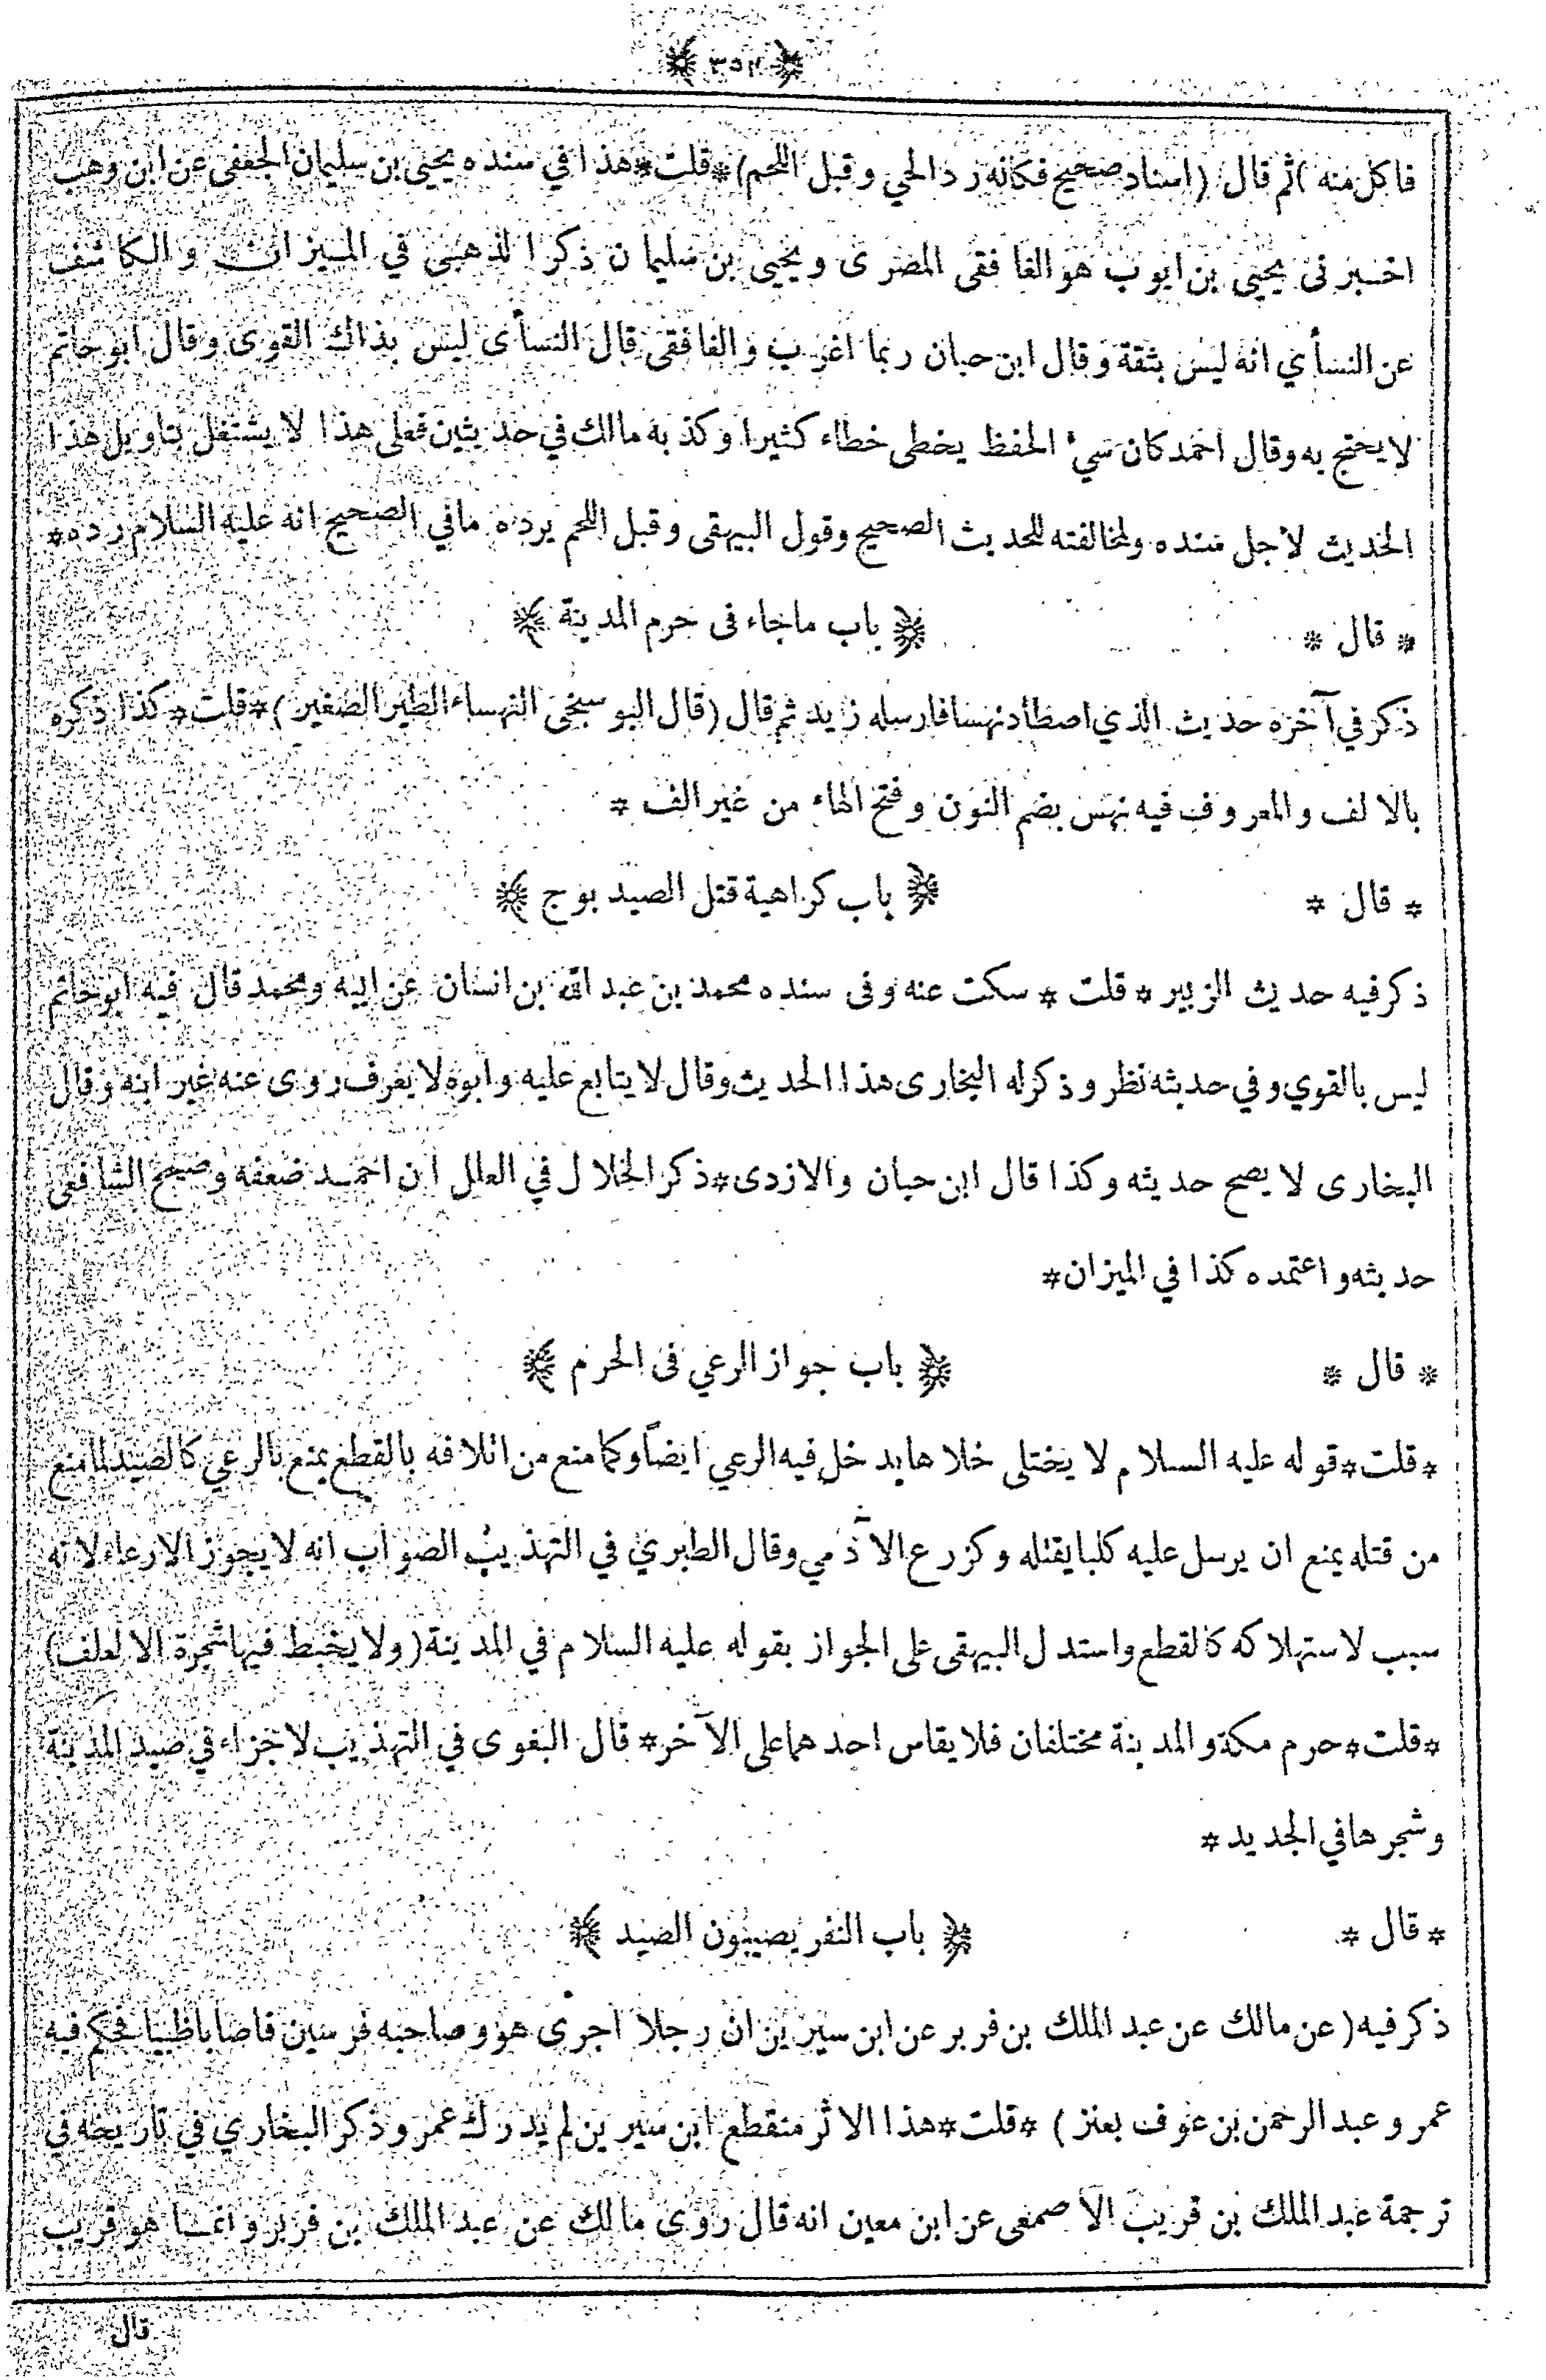 ﴿ ٣٥٢ ﴾
فاكل منه ) ثم قال (اسناد صحيح فكانه رد الحي وقبل اللحم) * قلت * هذا في سنده يحيى بن سليمان الجعفى عن ابن وهب
اخبرنى يحيى بن ايوب هو الغافقى المصرى ويحيى بن سليمان ذكر الذهبى في الميزان والكاشف
عن النسأي انه ليس بثقة وقال ابن حبان ربما اغرب والغافقى قال النسأى ليس بذاك القوى وقال ابو حاتم
لا يحتج به وقال احمد كان سيء الحفظ يخطى خطاء كثيرا وكذبه مالك في حديثين فعلى هذا لا يشتغل بتاويل هذا
الحديث لاجل سنده ولمخالفته للحديث الصحيح وقول البيهقى وقبل اللحم يرده مافي الصحيح انه عليه السلام رده *
* قال * ﴿ باب ماجاء فى حرم المدينة ﴾
ذكر في آخره حديث الذي اصطاد نهسا فارسله زيد ثم قال (قال البوسنجى النهساء الطير الصغير ) * قلت * كذا ذكره
بالالف والمعروف فيه نهس بضم النون وفتح الهاء من غير الف *
* قال * ﴿ باب كراهية قتل الصيد بوج ﴾
ذكر فيه حديث الزبير * قلت * سكت عنه وفى سنده محمد بن عبد الله بن انسان عن ابيه ومحمد قال فيه ابو حاتم
ليس بالقوي وفي حديثه نظر وذكر له البخارى هذا الحديث وقال لا يتابع عليه وابوه لا يعرف روى عنه غير ابنه وقال
البخارى لا يصح حديثه وكذا قال ابن حبان والازدى * ذكر الخلال في العلل ان احمد ضعفه وصحح الشافعى
حديثه واعتمده كذا في الميزان *
* قال * ﴿ باب جواز الرعي فى الحرم ﴾
* قلت * قوله عليه السلام لا يختلى خلاها يدخل فيه الرعي ايضاً وكما منع من اتلافه بالقطع يمنع بالرعي كالصيد لما منع
من قتله يمنع ان يرسل عليه كلبا يقتله وكزرع الآدمي وقال الطبري في التهذيب الصواب انه لا يجوز الارعاء لانه
سبب لاستهلاكه كالقطع واستدل البيهقى على الجواز بقوله عليه السلام في المدينة ( ولا يخبط فيها شجرة الا لعلف)
* قلت * حرم مكة والمدينة مختلفان فلا يقاس احدهما على الآخر * قال البغوى في التهذيب لا جزاء في صيد المدينة
وشجرها في الجديد *
* قال * ﴿ باب النفر يصيبون الصيد ﴾
ذكر فيه ( عن مالك عن عبد الملك بن قرير عن ابن سيرين ان رجلا اجرى هو وصاحبه فرسين فاصابا ظبيا فحكم فيه
عمر و عبد الرحمن بن عوف بعنز ) * قلت * هذا الاثر منقطع ابن سيرين لم يدرك عمر وذكر البخاري في تاريخه في
ترجمة عبد الملك بن قريب الاصمعى عن ابن معين انه قال روى مالك عن عبد الملك بن قرير وانما هو قريب
قال